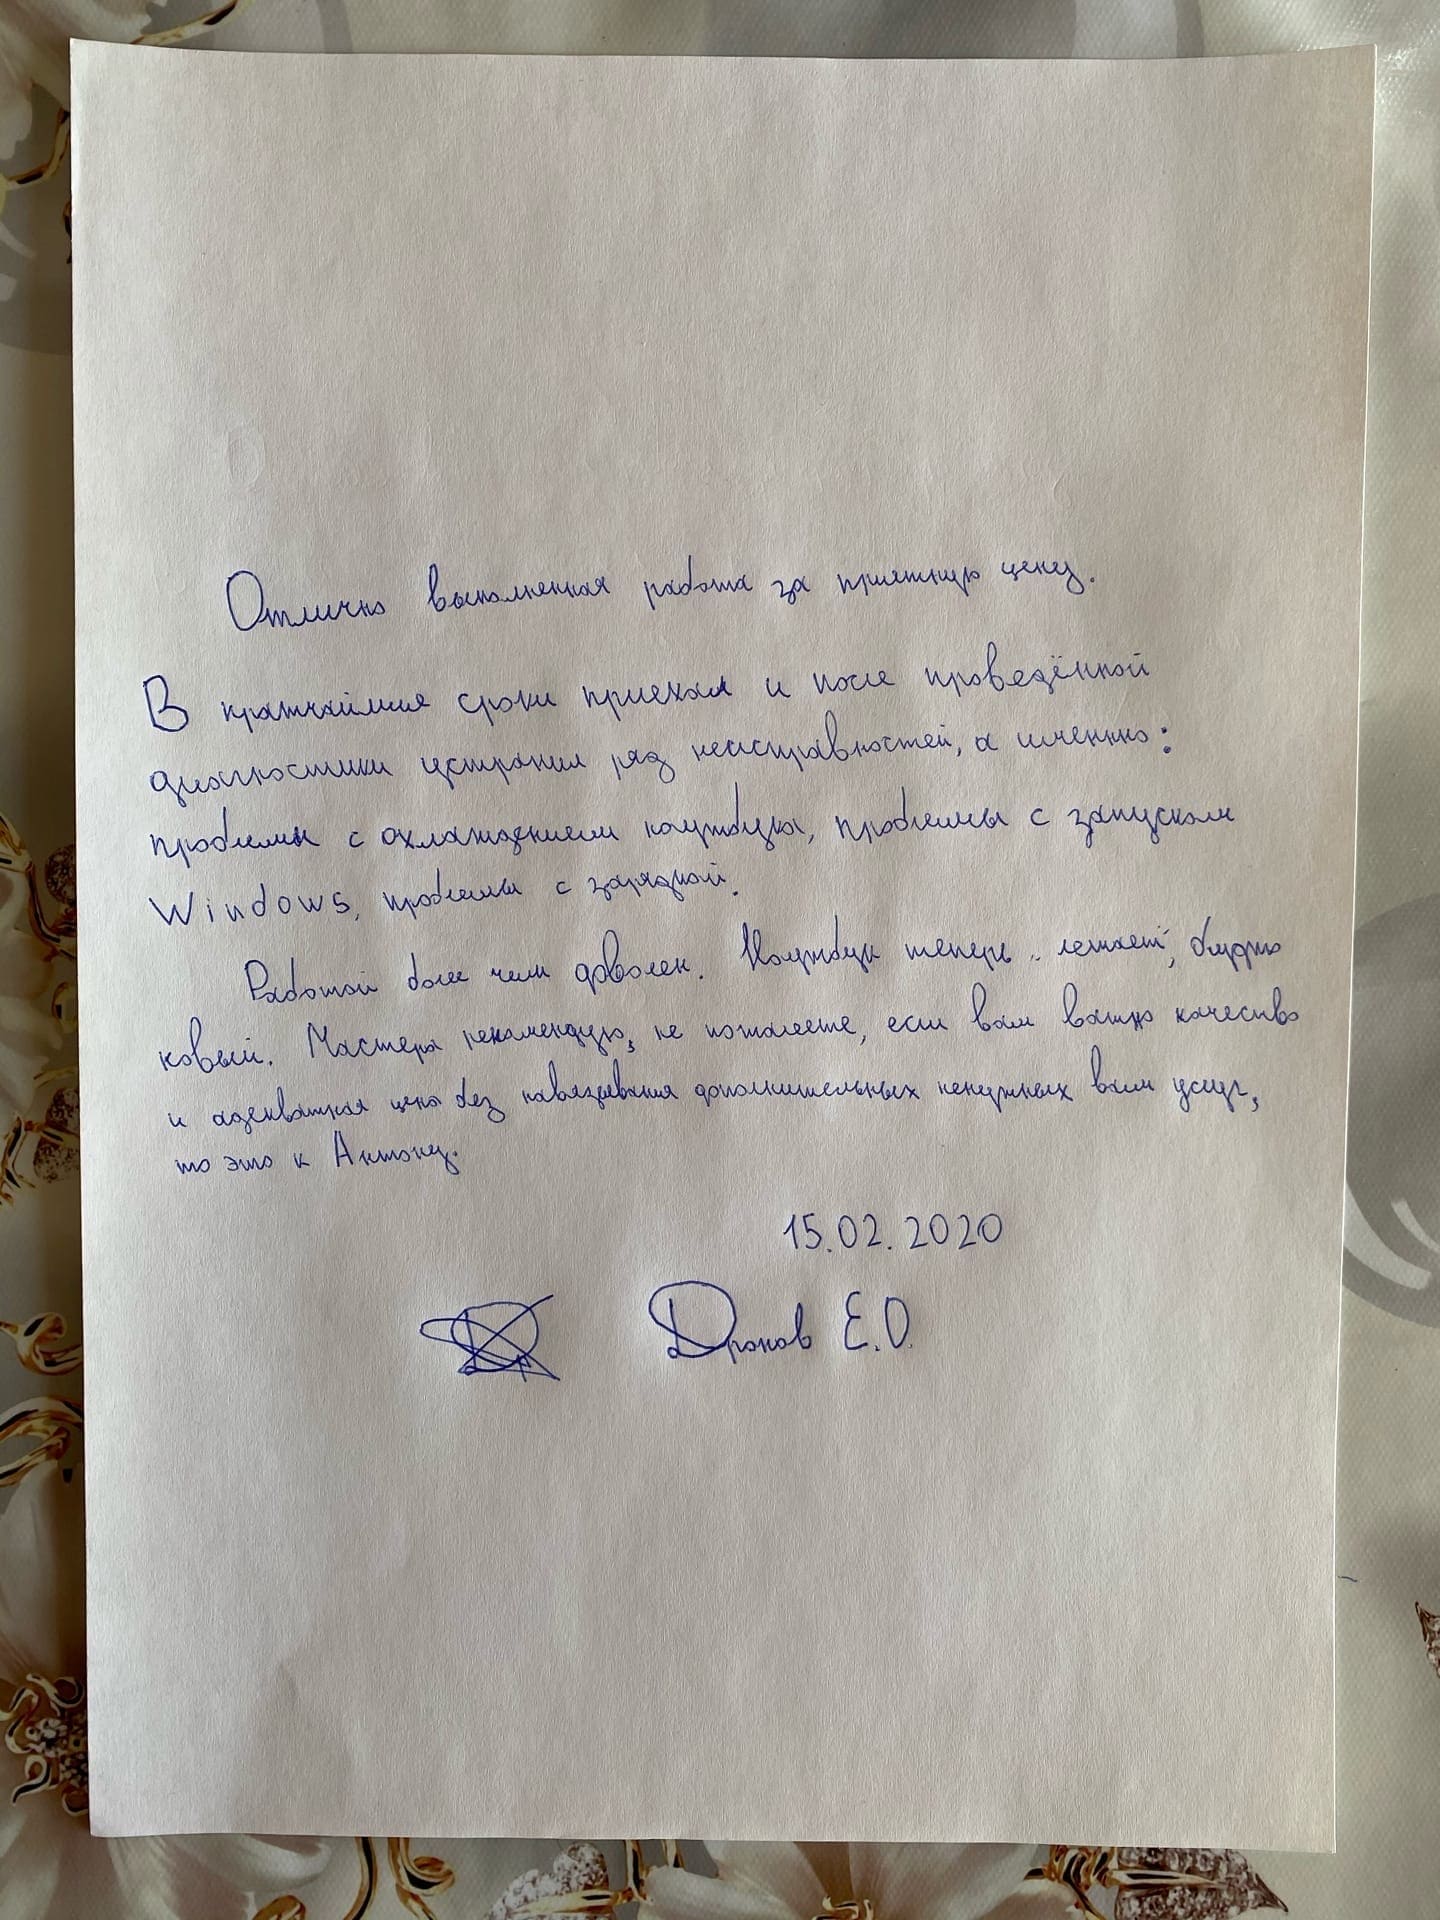 Отлично выполненная работа за приятную цену.
В кратчайшие сроки приехал и после проведённой
диагностики устранил ряд неисправностей, а именно:
проблемы с охлаждением ноутбука, проблемы с запуском
Windows, проблемы с зарядкой.
Работой более чем доволен. Ноутбук теперь "летает", будто
новый. Мастера рекомендую, не пожалеете, если вам важно качество
и адекватная цена без навязывания дополнительных ненужных вам услуг,
то это к Антону.
15.02.2020
Дронов Е.О.